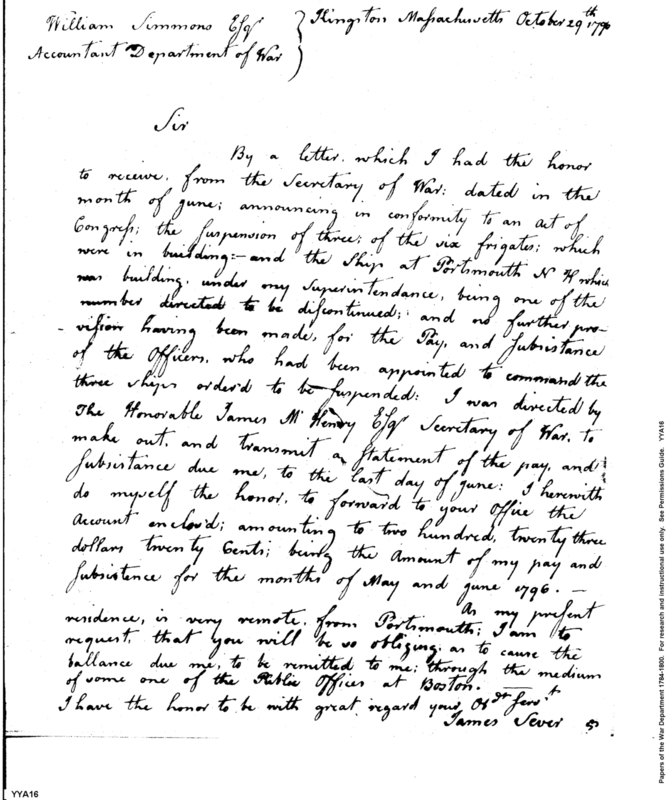 William Simmons Esqr
Accountant Department of War
Kingston Massachusetts October 29th 1796
Sir
By a letter, which I had the honor
to receive, from the Secretary of War; dated in the
month of june; announcing in conformity to an act of
Congress; the suspension of three; of the six frigates; which
were in building:- and the Ship at Portsmouth N H which
was building, under my Superintendance, being one of the
number directed to be discontinued; and no further pro-
vision having been made, for the Pay, and Subsistance
of the Officers, who had been appointed to command the
three ships order'd to be suspended: I was directed by
The Honorable James McHenry Esqr Secretary of War, to
make out, and transmit a Statement of the pay, and
Subsistance due me, to the last day of june: I herewith
do myself the honor, to forward to your Office the
Account enclos'd; amounting to two hundred, twenty three
dollars twenty Cents; being the Amount of my pay and
Subsistence for the months of May and june 1796. —
As my present
residence, is very remote, from Portsmouth; I am to
request, that you will be so obliging, as to cause the
ballance due me, to be remitted to me; through the medium
of some one of the Public Offices at Boston. —
I have the honor to be with great regard your Obdt Servt
James Sever
YYA16
Papers of the War Department 1784-1800. For research and instructional use only. See Permissions Guide. YYA16